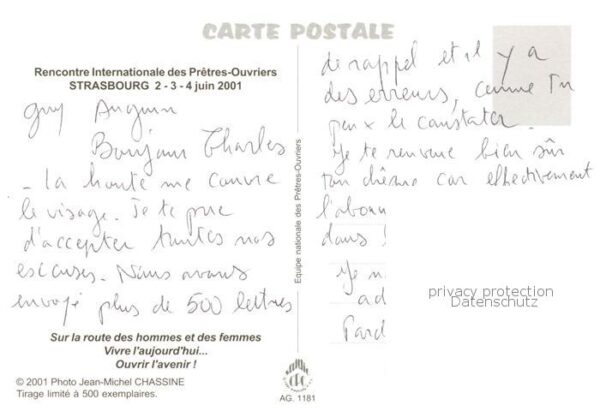 CARTE POSTALE
Rencontre Internationale des Prêtres-Ouvriers
STRASBOURG 2 - 3 - 4 juin 2001
Guy
Bonjour Charles
- La honte me couvre
le visage. Je te prie
d'accepter toutes nos
excuses. Nous avons
envoyé plus de 500 lettres
Sur la route des hommes et des femmes
Vivre l'aujourd'hui...
Ouvrir l'avenir !
© 2001 Photo Jean-Michel CHASSINE
Tirage limité à 500 exemplaires.
Equipe nationale des Prêtres-Ouvriers
AG. 1181
de rappel et il y a
des erreurs, comme Tu
peux le constater.
Je te renvoie bien sûr
ton chèque car effectivement
l'abonn
dans
Je n
ad
Pard
privacy protection
Datenschutz